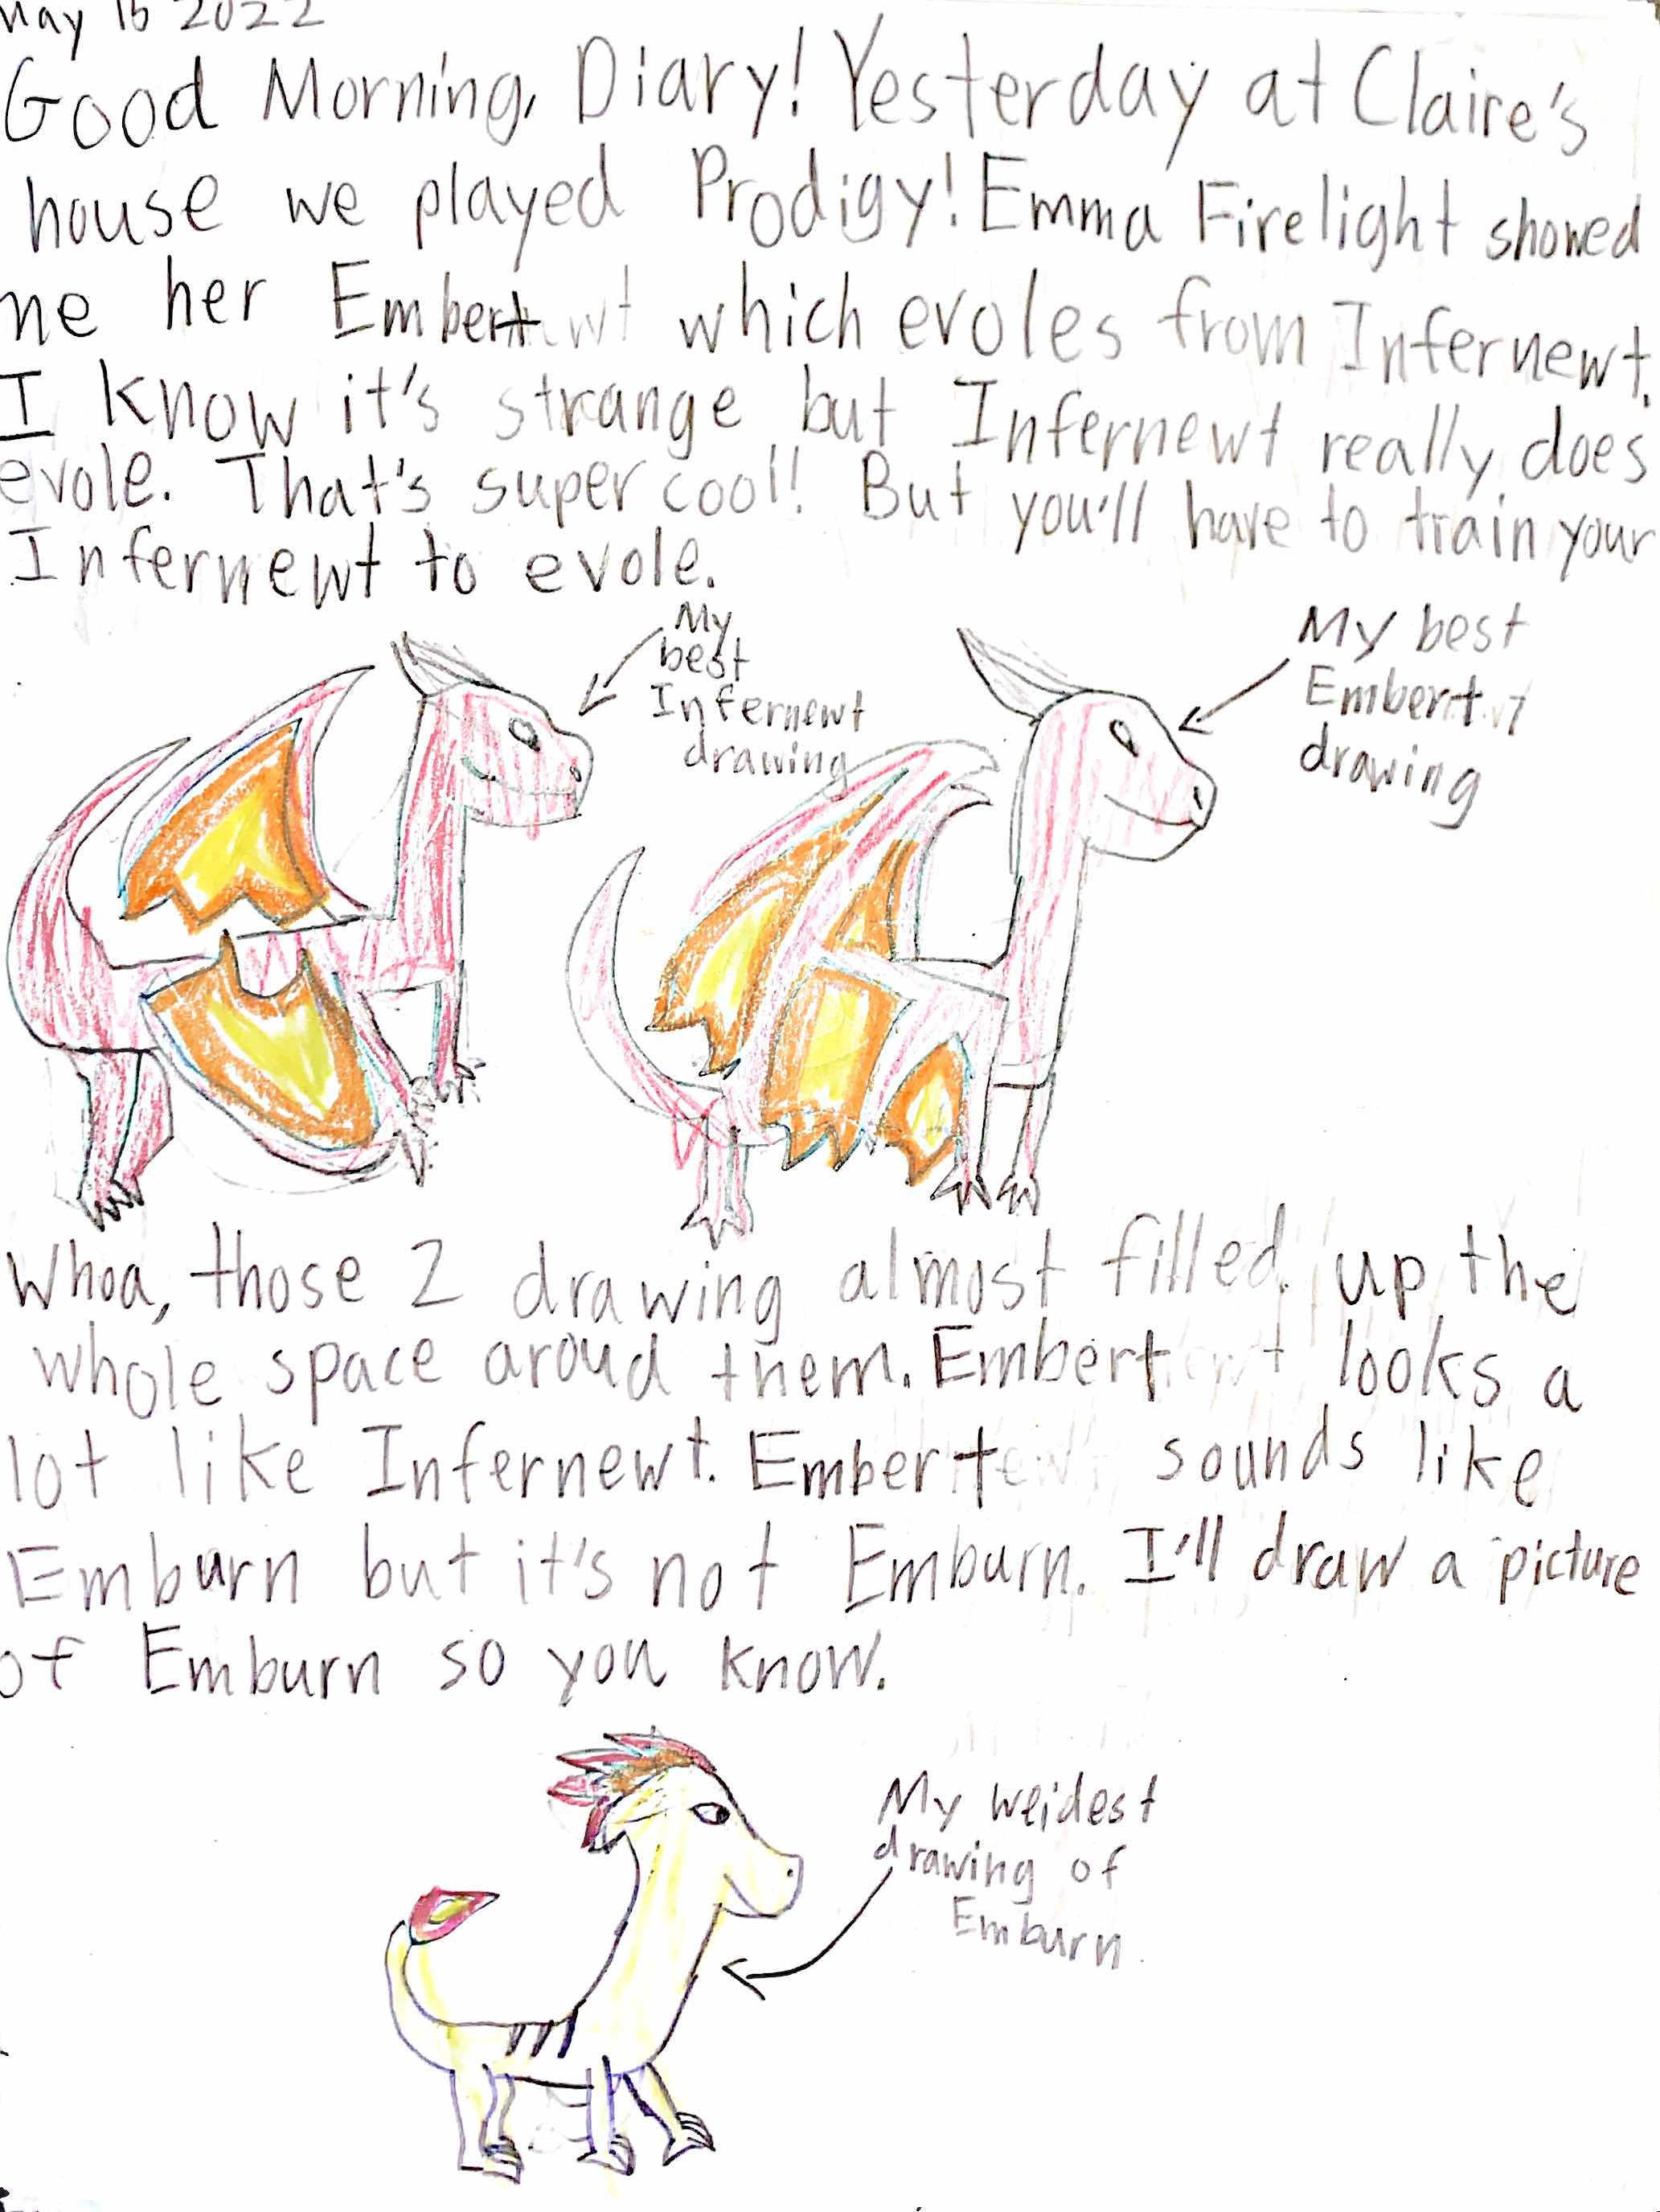 May 16 2022
Good Morning, Diary! Yesterday at Claire's
house we played Prodigy! Emma Firelight showed
me her Embert which evoles from Infernewt.
I know it's strange but Infernewt really does
evole. That's super cool! But you'll have to train your
Infernewt to evole.
My
best
Infernewt
drawing
My best
Embert
drawing
Whoa, those 2 drawing almost filled up the
whole space aroud them. Embert looks a
lot like Infernewt. Embert sounds like
Emburn but it's not Emburn. I'll draw a picture
of Emburn so you know.
My weidest
drawing of
Emburn